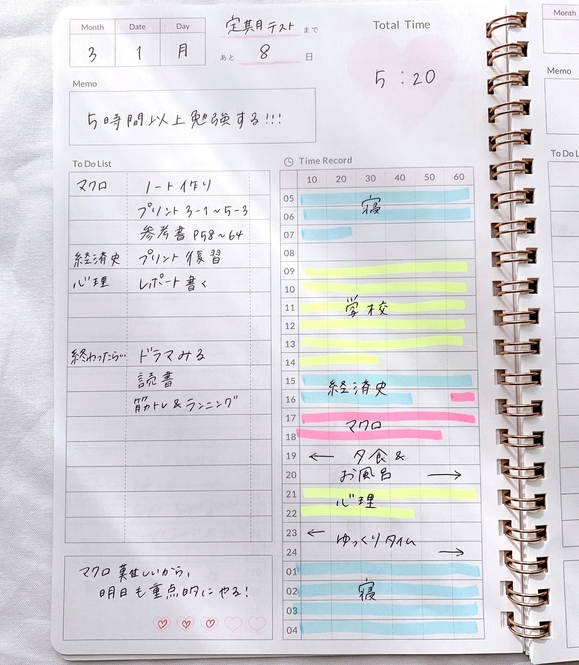 Month Date Day
3 1 月
定期テスト まで
あと 8 日
Total Time
5:20
Memo
5時間以上勉強する!!!
To Do List
マクロ ノート作り
プリント3-1~5-3
参考書 P58~64
経済史 プリント復習
心理 レポート書く
終わったら… ドラマみる
読書
筋トレ&ランニング
マクロ難しいから、
明日も重点的にやる!
Time Record
10 20 30 40 50 60
05
06 寝
07
08
09
10
11 学校
12
13
14
15 経済史
16
17 マクロ
18
19 ← 夕食&
20 お風呂 →
21 心理
22
23 ← ゆっくりタイム
24 →
01
02 寝
03
04
Month
Memo
To Do L